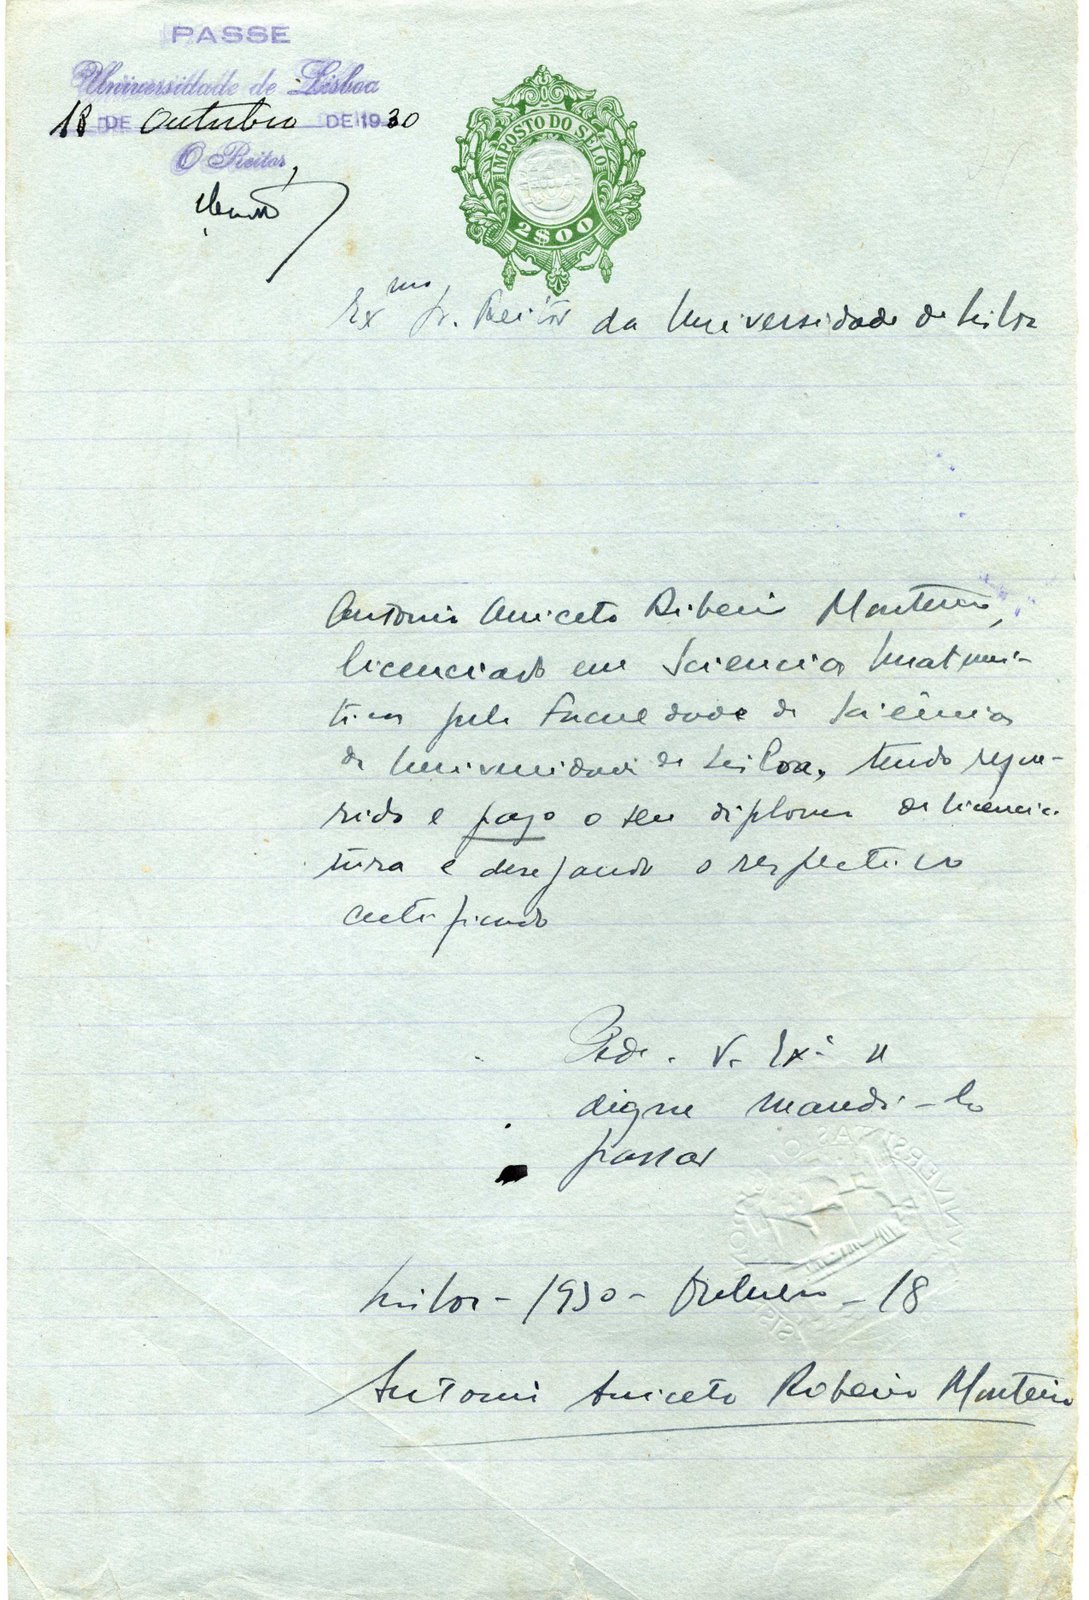 PASSE
Universidade de Lisboa
18 DE Outubro DE 1930
O Reitor,
IMPOSTO DO SELO
2$00
Exmo Sr. Reitor da Universidade de Lisboa
Antonio Aniceto Ribeiro Monteiro,
licenciado em Sciencias Matemá-
ticas pela Faculdade de Sciências
da Universidade de Lisboa, tendo reque-
rido e pago o seu diploma de licencia-
tura e desejando o respectivo
certificado
Pede a V. Exª se
digne mandá-lo
passar
Lisboa - 1930 - Outubro - 18
Antonio Aniceto Ribeiro Monteiro